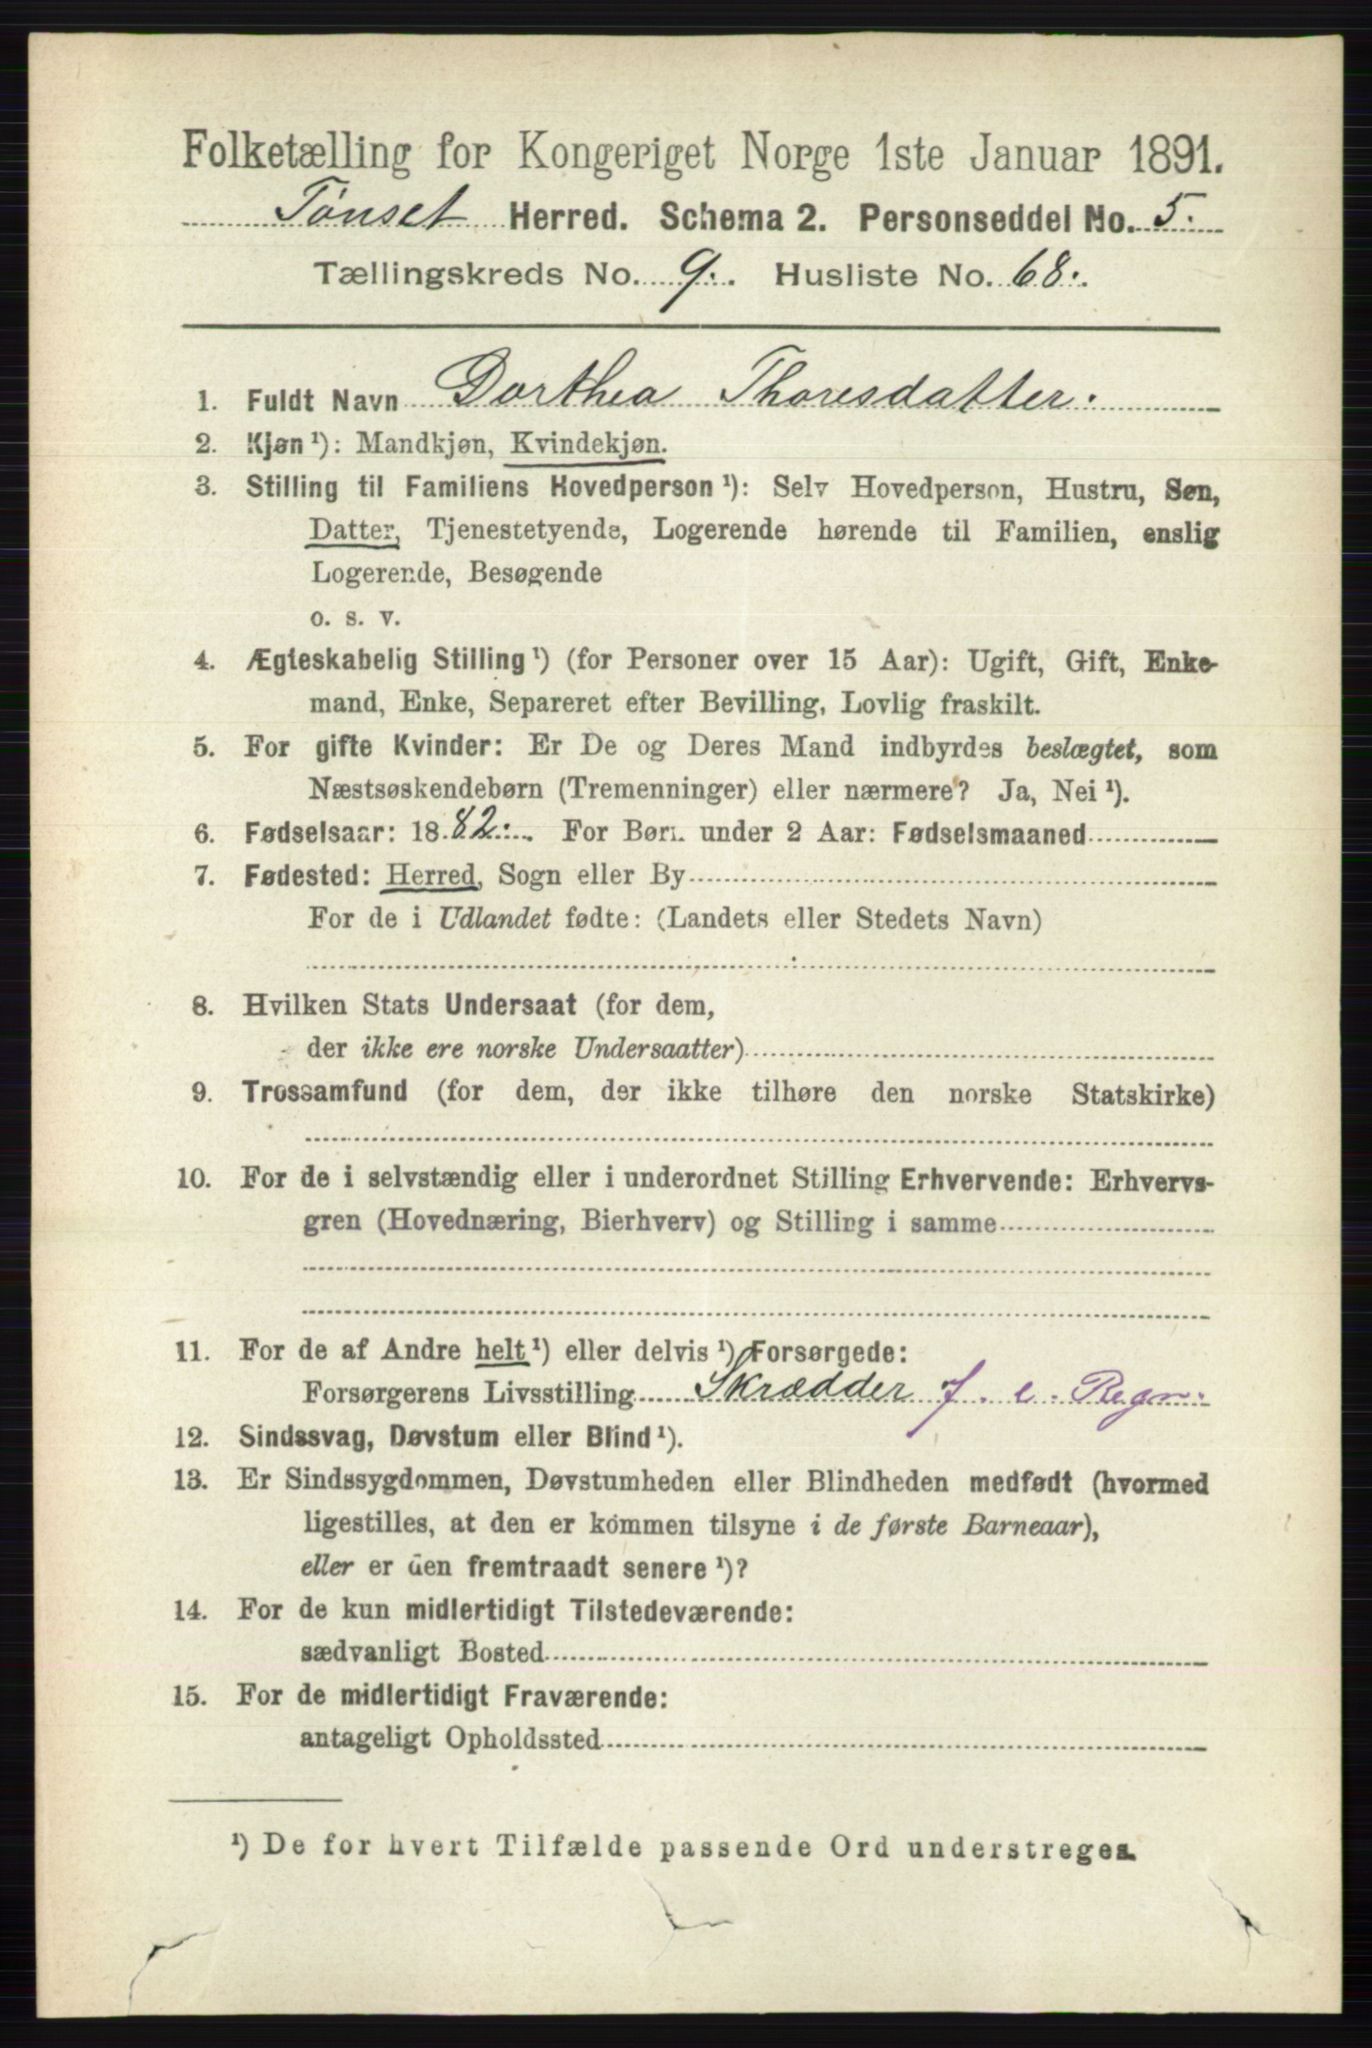 Folketælling for Kongeriget Norge 1ste Januar 1891.
Tønset Herred. Schema 2. Personseddel No. 5.
Tællingskreds No. 9. Husliste No. 68.
1. Fuldt Navn Dorthea Thoresdatter.
2. Kjøn ¹): Mandkjøn, Kvindekjøn.
3. Stilling til Familiens Hovedperson ¹): Selv Hovedperson, Hustru, Søn,
Datter, Tjenestetyende, Logerende hørende til Familien, enslig
Logerende, Besøgende
o. s. v.
4. Ægteskabelig Stilling ¹) (for Personer over 15 Aar): Ugift, Gift, Enke-
mand, Enke, Separeret efter Bevilling, Lovlig fraskilt.
5. For gifte Kvinder: Er De og Deres Mand indbyrdes beslægtet, som
Næstsøskendebørn (Tremenninger) eller nærmere? Ja, Nei ¹).
6. Fødselsaar: 1882. For Børn under 2 Aar: Fødselsmaaned
7. Fødested: Herred, Sogn eller By
For de i Udlandet fødte: (Landets eller Stedets Navn)
8. Hvilken Stats Undersaat (for dem,
der ikke ere norske Undersaatter)
9. Trossamfund (for dem, der ikke tilhøre den norske Statskirke)
10. For de i selvstændig eller i underordnet Stilling Erhvervende: Erhvervs-
gren (Hovednæring, Bierhverv) og Stilling i samme
11. For de af Andre helt ¹) eller delvis ¹) Forsørgede:
Forsørgerens Livsstilling Skrædder f. e. Regn.
12. Sindssvag, Døvstum eller Blind ¹).
13. Er Sindssygdommen, Døvstumheden eller Blindheden medfødt (hvormed
ligestilles, at den er kommen tilsyne i de første Barneaar),
eller er den fremtraadt senere ¹)?
14. For de kun midlertidigt Tilstedeværende:
sædvanligt Bosted
15. For de midlertidigt Fraværende:
antageligt Opholdssted
¹) De for hvert Tilfælde passende Ord understreges.